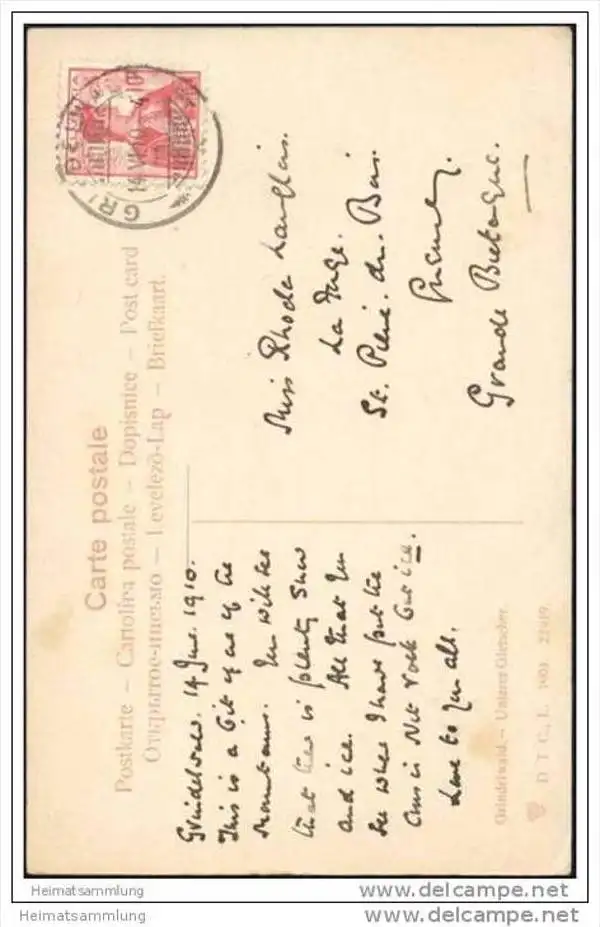 Carte postale
Postkarte – Cartolina postale – Dopisnice – Post card
Открытое-письмо – Levelező-Lap – Briefkaart.
Grindelwald. 14 June. 1910.
This is a bit of one of the
mountains. You will see
that there is plenty snow
and ice. All that you
see where I have put the
Cross is Not rock but ice.
Love to you all.
Miss Rhoda Langlois.
La
St. Pierre. du. Bois.
Guernsey.
Grande Bretagne.
14 VI 10
GRI
HELVETIA
Grindelwald. – Unterer Gletscher.
D T C., L. 1903
Heimatsammlung
www.delcampe.net
Heimatsammlung
www.delcampe.net